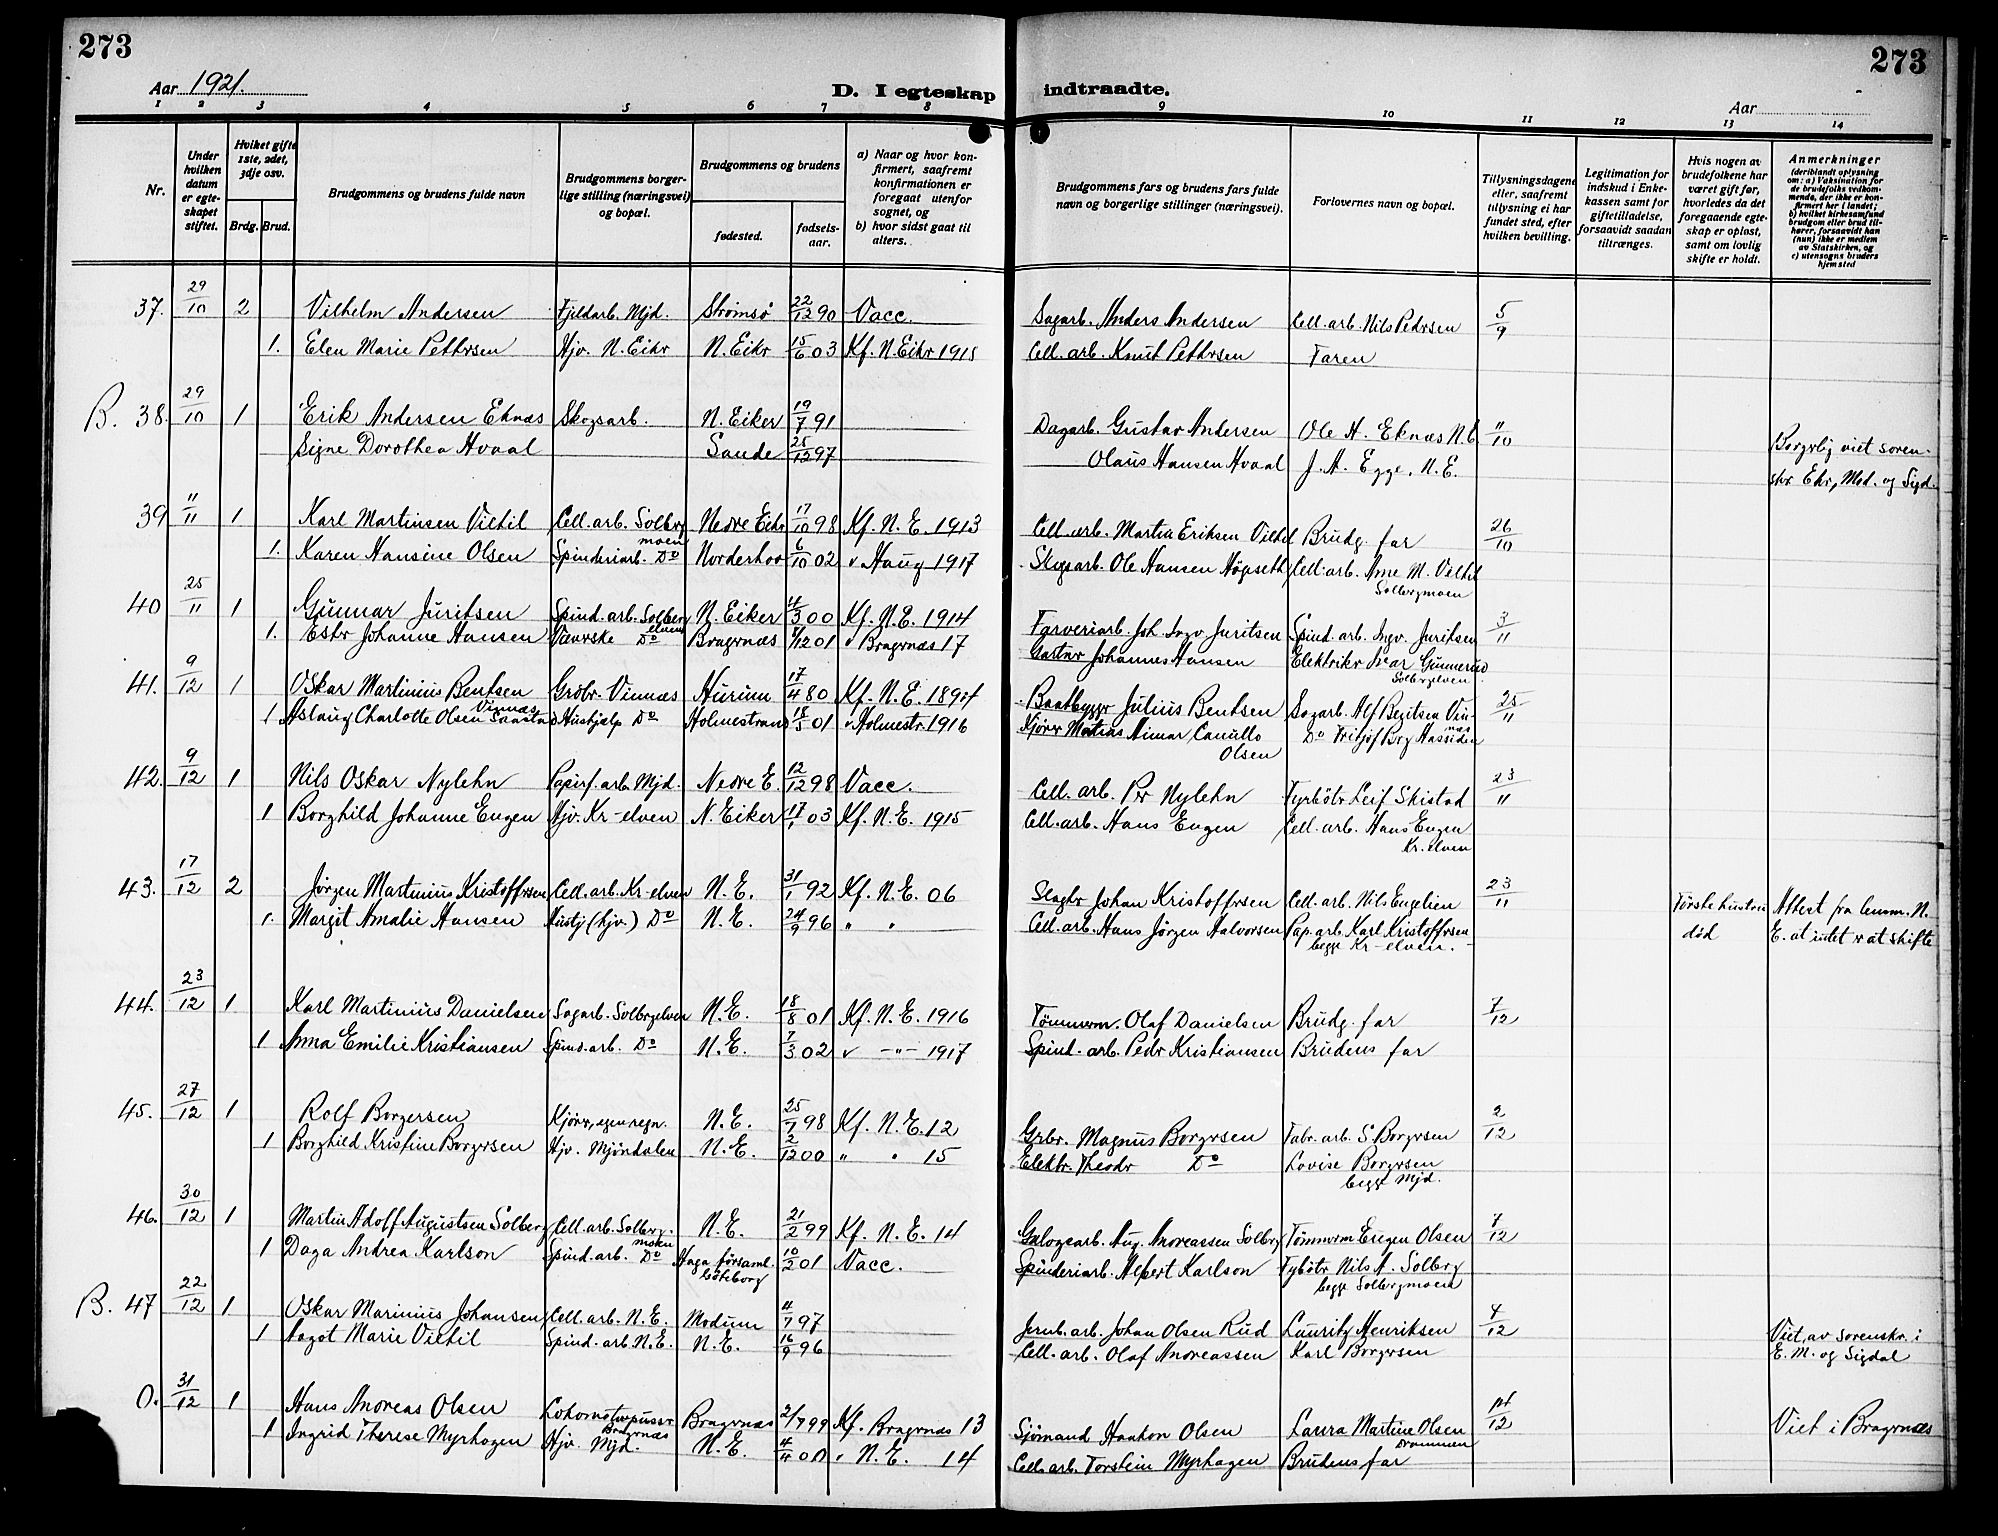 273
273
Aar 1921.
D. I egteskap indtraadte.
Aar
1 2 3 4 5 6 7 8 9 10 11 12 13 14
Nr.
Under hvilken datum er egteskapet stiftet.
Hvilket gifte 1ste, 2det, 3dje osv.
Brdg. Brud.
Brudgommens og brudens fulde navn
Brudgommens borgerlige stilling (næringsvei) og bopæl.
Brudgommens og brudens
fødested.
fødselsaar.
a) Naar og hvor konfirmert, saafremt konfirmationen er foregaat utenfor sognet, og
b) hvor sidst gaat til alters.
Brudgommens fars og brudens fars fulde navn og borgerlige stillinger (næringsvei).
Forlovernes navn og bopæl.
Tillysningsdagene eller, saafremt tillysning ei har fundet sted, efter hvilken bevilling.
Legitimation for indskud i Enkekassen samt for giftetilladelse, forsaavidt saadan tiltrænges.
Hvis nogen av brudefolkene har været gift før, hvorledes da det foregaaende egteskap er opløst, samt om lovlig skifte er holdt.
Anmerkninger
(deriblandt oplysning om: a) Vaksination for de brudefolks vedkommende, der ikke er konfirmert her i landet; b) hvilket kirkesamfund brudgom eller brud tilhører, forsaavidt han (hun) ikke er medlem av Statskirken, og c) utensogns bruders hjemsted
37. 29/10 2 Vilhelm Andersen Fjeldarb. Mjd. Strømsø 22/12 90 Vacc. Sagarb. Anders Andersen Cell. arb. Nils Pedrsen 5/9
1. Elen Marie Pettrsen Hjv. N. Eikr N. Eikr 15/6 03 Kf. N. Eikr 1918 Cell. arb. Knut Pettrsen Faren
B. 38. 29/10 1 Erik Andersen Eknæs Skogsarb. N. Eiker 19/7 91 Dagarb. Gustav Andersen Ole A. Eknæs N.E 11/10
Signe Dorothea Hvaal Sande 25/12 97 Olaus Hansen Hvaal J. A. Egge, N. E. Borgrlig viet soren-
skr Ekr, Mod. og Sigd.
39 11/11 1 Karl Martinsen Vittil Cell. arb. Solberg moen Nedre Eikr 17/10 98 Kf. N. E. 1913 Cell. arb. Martin Eriksen Vittil Brudg. far 26/10
1. Karen Hansine Olsen Spinderiarb. Do Norderhov 6/10 02 " Haug 1917 Skogsarb. Ole Hansen Høgseth Cell. arb. Arne M. Vittil
Solbergmoen
40 25/11 1 Gunnar Juritsen Spind. arb. Solberg elven N. Eiker 4/3 00 Kf. N. E. 1914 Farveriarb. Joh. Ingv. Juritsen Spind. arb. Ingv. Juritsen 3/11
1. Estr Johanne Hansen Væverske Do Bragrnæs 12 01 " Bragrnæs 17 Gartnr Johannes Hansen Elektrikr Ivar Gunnerud
Solbergelven
41. 9/12 1 Oskar Martinius Bentsen Grøbr. Vinnæs Hurum 17/4 80 Kf. N. E. 1894 Baatbyggr Julius Bentsen Sagarb. Alf Bentsen Vin- 25/11
næs
1 Aslaug Charlotte Olsen Vinnæs Hushjælp Do Holmestrand 18/5 01 " Holmestr. 1916 Kjørr Matias Hilmar Camillo Do Fritjof Berg Hassiden
Olsen
42. 9/12 1 Nils Oskar Nylehn Papirf. arb. Mjd. Nedre E. 12/12 98 Vacc. Cell. arb. Per Nylehn Fyrbøtr Leif Skistad 23/11
1 Borghild Johanne Engen Hjv. Kr-elven N. Eiker 17/1 03 Kf. N. E. 1915 Cell. arb. Hans Engen Cell. arb. Hans Engen
Kr. elven
43. 17/12 2 Jørgen Martinius Kristoffrsen Cell. arb. Kr-elven N. E. 31/1 92 Kf. N. E. 06 Slagtr Johan Kristoffrsen Cell. arb. Nils Engelien 23/11 Første hustru Attest fra lensm. N.
1. Margit Amalie Hansen Hustj (hjv.) Do N. E. 24/9 96 " " Cell. arb. Hans Jørgen Halvorsen Pap. arb. Karl Kristoffrsen død E. at intet v at skifte
begge Kr-elven.
44. 23/12 1 Karl Martinius Danielsen Sagarb. Solbrgelven N. E. 18/8 01 Kf. N. E. 1916 Tømmerm. Olaf Danielsen Brudg. far 7/12
1 Anna Emilie Kristiansen Spind. arb. Do N. E. 7/3 02 " -"- 1917 Spind. arb. Pedr Kristiansen Brudens far
45. 27/12 1 Rolf Borgersen Kjørr, egen regn. N. E. 25/7 98 Kf. N. E. 12 Grbr. Magnus Borgrsen Fabr. arb. S. Borgrsen 2/12
1 Borghild Kristine Borgrsen Hjv. Mjøndalen N. E. 2/12 00 " " 15 Elektr. Theodr Do Lovise Borgrsen
begge Mjd.
46. 30/12 1 Martin Adolf Augustsen Solberg Cell. arb. Solberg- moen N. E. 21/2 99 Kf. N. E. 14 Aug. Andreassen Solbrg Tømmerm Eugen Olsen 7/12
1 Daga Andrea Karlson Spind. arb. Do Haga församl. Göteborg 10/2 01 Vacc. Spinderiarb. Albert Karlson Fyrbøtr Nils A. Solberg
begge Solbergmoen
B. 47 22/12 1 Oskar Marinius Johansen Cell. arb. N. E. Modum 4/7 97 Jernb. arb. Johan Olsen Rud Lauritz Henriksen 7/12 Viet av sorenskr. i
1 Dagot Marie Vittil Spind. arb. N. E. N. E. 16/9 96 Cell. arb. Olaf Andreassen Karl Borgrsen E. M. og Sigdal
0. 31/12 1 Hans Andreas Olsen Lokomotivpussr Bragrnæs Bragrnæs 2/7 99 Kf. Bragrnæs 13 Sjømand Haakon Olsen Laura Martine Olsen 14/12 Viet i Bragrnæs
Drammen
1 Ingrid Therese Myrhagen Hjv. Mjd. N. E. 4/4 00 " N. E. 14 Cell. arb. Torstein Myrhagen Brudens far